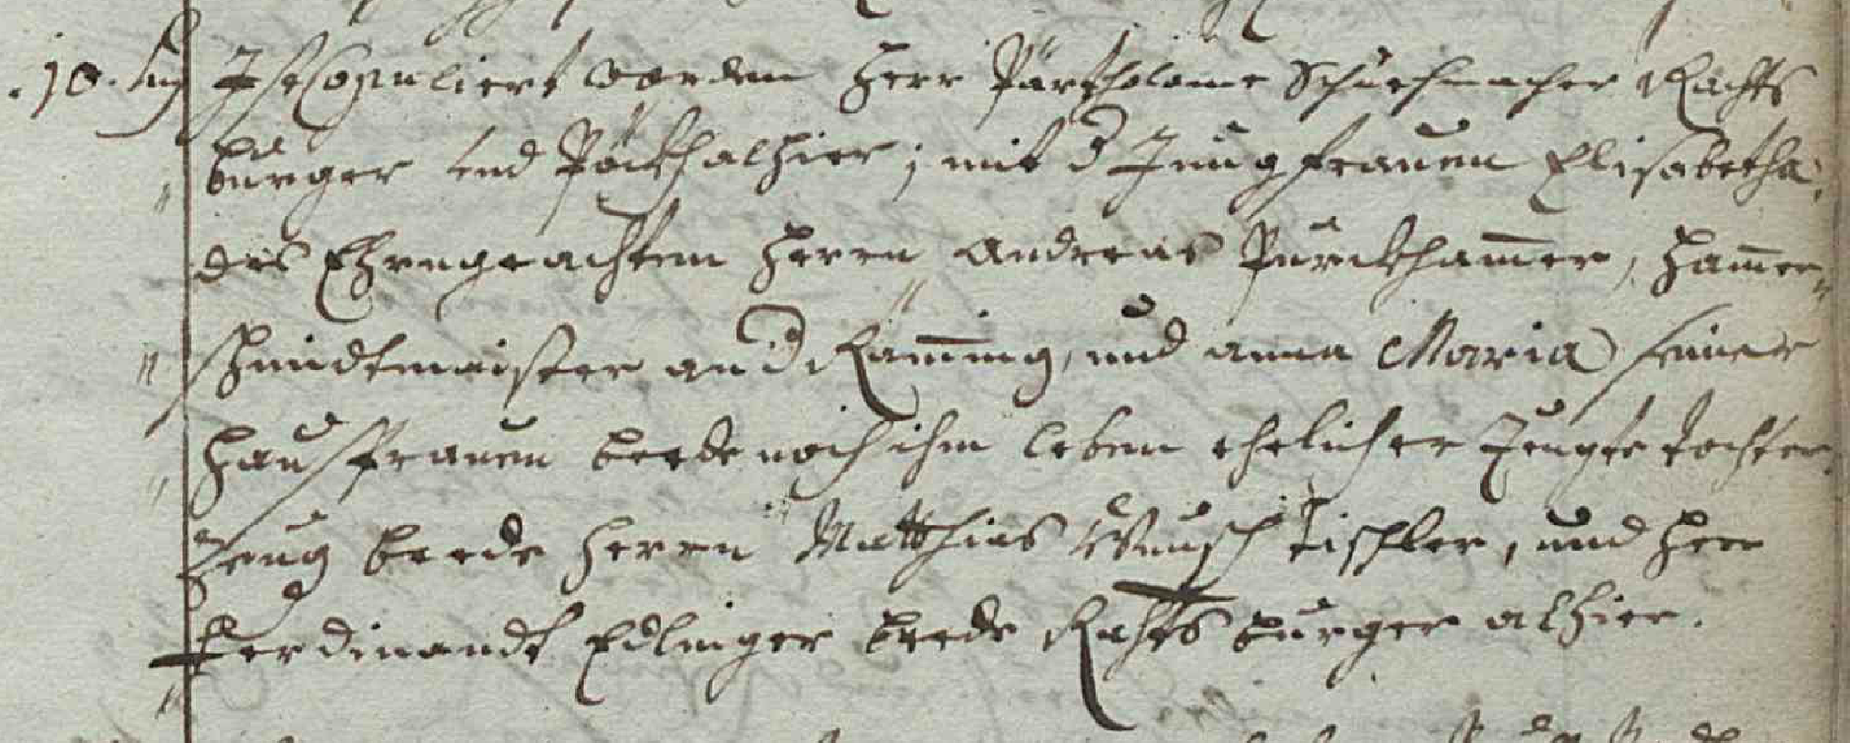 .10. Aug Ist Copuliert worden Herr Pärtholome Schuechmacher Rathts
burger und Pöckh alhier; mit d Jungfrauen Elisabetha,
des Ehrngeachten Herrn Andreas Purckham̄er, Ham̄er„
„ schmidtmaister an d Ram̄ing, und anna Maria seiner
„ Hausfrauen beede noch ihm leben ehelicher Zeugte tochter.
Zeug beede Herrn Matthias Wunsch Tischler, und Herr
Ferdinandt Edlinger beede Rahts burger alhier.